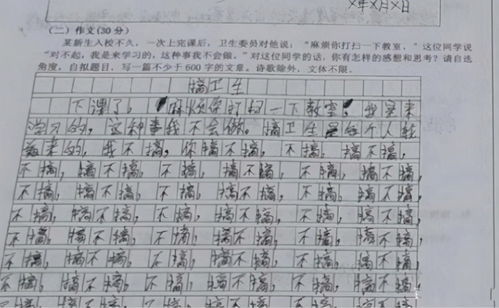 X年X月X日
(二)作文(30分)
某新生入校不久,一次上完课后,卫生委员对他说:“麻烦你打扫一下教室。”这位同学说
“对不起,我是来学习的,这种事我不会做。”对这位同学的话,你有怎样的感想和思考?请自选
角度,自拟题目,写一篇不少于600字的文章。诗歌除外,文体不限。
搞卫生
下课了,麻烦你打扫一下教室,我是来
学习的,这种事我不会做。搞卫生是每个人轮
着来的,我不搞,你搞不搞,不搞,搞不搞,
不搞,搞不搞,不搞,搞不搞,不搞,搞不搞,
不搞,搞不搞,不搞,搞不搞,不搞,搞不搞,
不搞,搞不搞,不搞,搞不搞,不搞,搞不搞,
不搞,搞不搞,不搞,搞不搞,不搞,搞不搞,
不搞,搞不搞,不搞,搞不搞,不搞,搞不搞,
不搞,搞不搞,不搞,搞不搞,不搞,搞不搞,